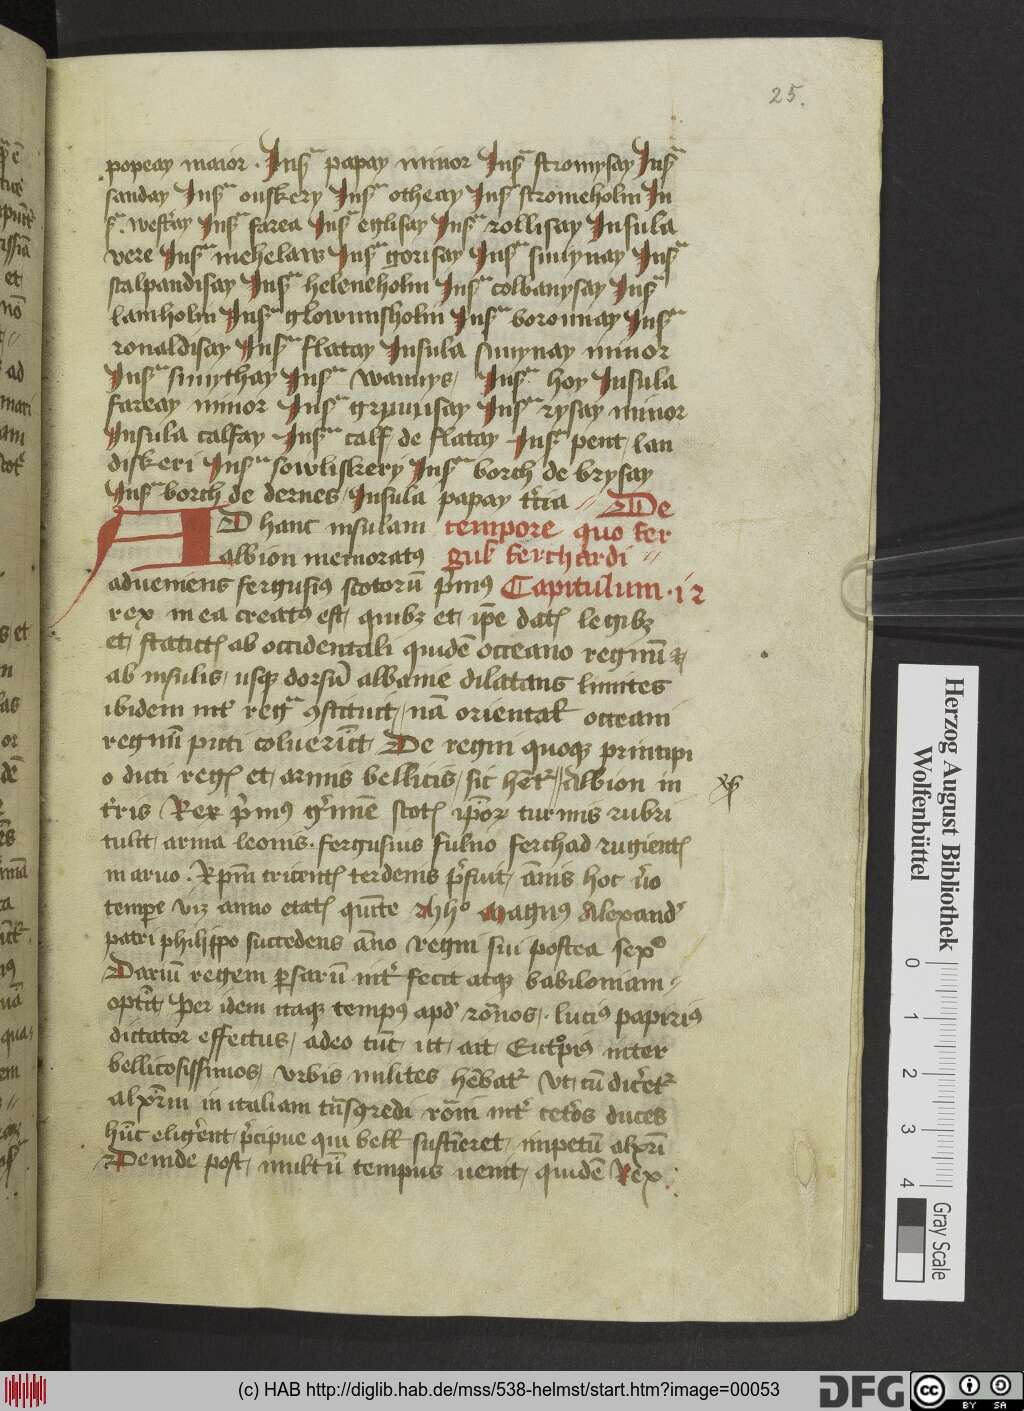 25.
popeay maior. Insᵃ papay minor Insᵃ stromysay Insᵃ
sanday Insᵃ ouskery Insᵃ otheay Insᵃ stromeholm In
sᵃ. westray Insᵃ farea Insᵃ eglisay Insᵃ rollisay Insula
vere Insᵃ mehelaws Insᵃ gorisay Insᵃ Insᵃ
stalpandisay Insᵃ heleneholm Insᵃ colbanysay Insᵃ
lamholm Insᵃ glowmisholm Insᵃ boronnay Insᵃ
ronaldisay Insᵃ flatay Insula minor
Insᵃ smythay Insᵃ wannys, Insᵃ hoy Insula
fareay minor Insᵃ Insᵃ rysay minor
Insula calfay Insᵃ calf de flatay Insᵃ pent, lan
diskeri Insᵃ sowliskery Insᵃ borch de brysay
Insᵃ borch de dernes, Insula papay t̄cia // De
AD hanc insulam tempore quo fer
albion memoratꝰ guß ferchardi //
adveniens fergusiꝰ scotorū p̄mꝰ Capitulum. ix
rex in ea creatꝰ est, quibꝫ et, ip̄e datꝭ legibꝫ
et, statictꝭ ab occidentali quidē occeano regnū ⁊
ab insulis, usqꝫ dorsū albanie dilatans limites
ibidem int̄ regᷓ ꝯstituit, nā oriental̄ occeani
regnū picti coluerūt De regni quoqꝫ principi
o dicti regꝭ et, armis bellicis, sic hēt̄, // Albion in
t̄ris Rex p̄mꝰ scotꝭ ip̄oꝝ turmis rubri
tulit, arma leonis. fergusius fulvo ferchad rugientꝭ
in arvo. Xp̄m tricentꝭ terdenis p̄fuit, ānis hoc v̄o
tempe viꝫ anno etatꝭ quīte magnꝰ Alexandꝰ
patri philippo succedens āno regni sui postea sexᵒ
Dariū regem p̄sarū int̄ fecit atqꝫ babiloniam //
optīt, Per idem itaqꝫ tempꝰ apđ rōnos, luciꝰ papiriꝰ
dictator effectus, adeo tūc, ut, ait, Eutᵒpiꝰ inter
bellicosissimos, urbis milites hēbat̄ Vt, cū dic̄et̄
alxr̄m in italiam tn̄sgredi rōni int̄ cet̄os duces
hūc eliḡent, p̄cipue qui bell̄ sustīeret, impetū alxrī
Deinde post, multū tempus venit, quidē Rex.
Herzog August Bibliothek
Wolfenbüttel
0 1 2 3 4
Gray Scale
(c) HAB http://diglib.hab.de/mss/538-helmst/start.htm?image=00053
DFG
cc BY SA